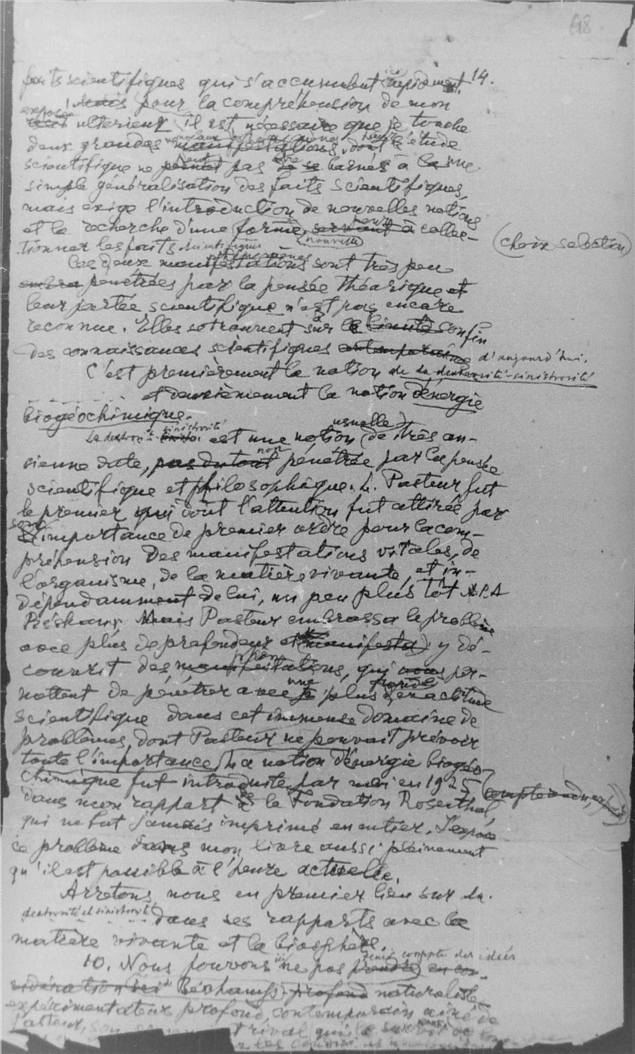 68
14.
faits scientifiques qui s'accumulent rapidement.
Mais pour la compréhension de mon
exposé ulterieur il est nécessaire que je touche
deux grandes manifestations, dont l'étude
scientifique ne peut pas être bornés à la
simple généralisation des faits scientifiques,
mais exige l'introduction de nouvelles notions
et la recherche d'une forme servant à collec-
nouvelle
tionner les faits scientifiques
(choix selection)
Ces deux manifestations sont très peu
phénomènes
pénétrées par la pensée théorique et
leur portée scientifique n'est pas encore
reconnue. Elles se trouvent sur le limite confin
des connaissances scientifiques d'aujourd'hui.
C'est premièrement la notion de la dextrorité-sinistrorité
et deuxièmement la notion d'énergie
biogéochimique.
La sinistrorité est une notion (usuelle) de très an-
cienne date, pas du tout pénétrée par la pensée
non
scientifique et philosophique. L. Pasteur fut
le premier qui dont l'attention fut attirée par
son importance de premier ordre pour la com-
préhension des manifestations vitales, de
l'organisme, de la matière vivante, et in-
dépendamment de lui, un peu plus tôt
Béchamp. Mais Pasteur embrassa le problème
avec plus de profondeur et (manifesta) y dé-
couvrit des manifestations, qui nous per-
mettent de pénétrer avec une plus exactitude
grande
scientifique dans cet immense domaine de
problèmes, dont Pasteur ne pouvait prévoir
toute l'importance. La notion d'énergie biogéo-
chimique fut introduite par moi en 1925
dans mon rapport à la Fondation Rosenthal
qui ne fut jamais imprimé en entier. J'expose
ce problème dans mon livre aussi pleinement
qu'il est possible à l'heure actuelle.
Arretons nous en premier lieu sur la
dextrorité et sinistrorité dans ses rapports avec la
matière vivante et la biosphère.
10. Nous pouvons ne pas prendre en con-
tenir compte des idées
sidération Béchamp profond naturaliste
expérimentateur profond, contemporain ainé de
Pasteur, son rival